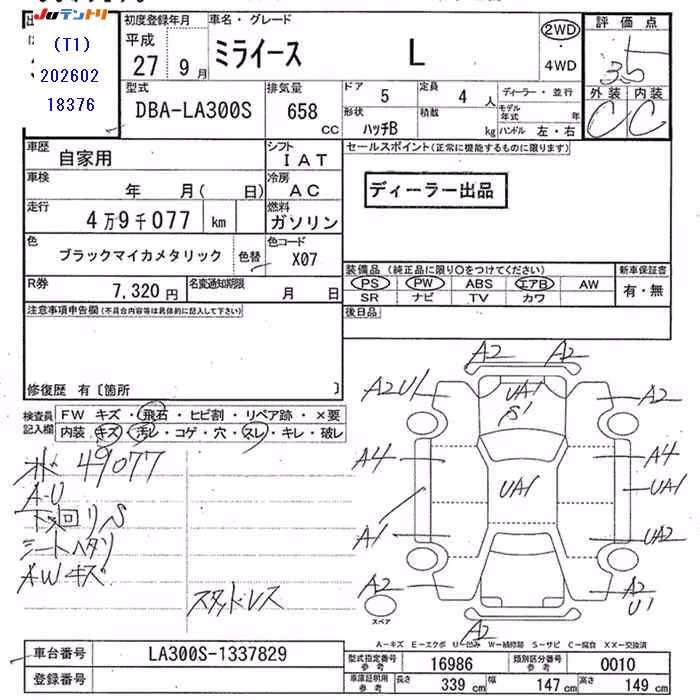 JUテントリ
(T1)
202602
18376
初度登録年月
平成
27 9月
車名・グレード
ミライース L
2WD
・
4WD
評価点
3.5
外装 内装
C C
型式
DBA-LA300S
排気量
658 CC
ドア 5
定員 4 人
ディーラー・並行
形状 ハッチB
積載 kg
モデル年式 年
ハンドル 左・右
車歴 自家用
シフト IAT
セールスポイント(正常に機能するものに限ります)
ディーラー出品
車検 年 月( 日)
冷房 AC
走行 4万9千077 km
燃料 ガソリン
色 ブラックマイカメタリック 色替
色コード X07
R券 7,320円
名変通知期限 月 日
装備品(純正品に限り○をつけてください)
PS PW ABS エアB AW
SR ナビ TV カワ
新車保証書
有・無
後日品
注意事項申告欄(不具合内容等は具体的に記入して下さい)
修復歴 有〔箇所 〕
検査員記入欄
FW キズ・飛石・ヒビ割・リペア跡・×要
内装・キズ・汚レ・コゲ・穴・スレ・キレ・破レ
49077
A-U
下回リS
シートヘタリ
AWキズ
スタッドレス
A2 A2
A2U1 UA1 S1 A2
A4 A4
UA1 UA1
A1 UA2
A2 A2 U1
A2
スペア
A-キズ E-エクボ U-凹み W-補修跡 S-サビ C-腐食 XX-交換済
車台番号 LA300S-1337829
登録番号
型式指定番号参考 16986
類別区分番号参考 0010
車庫証明用参考 長さ 339cm 幅 147cm 高さ 149cm